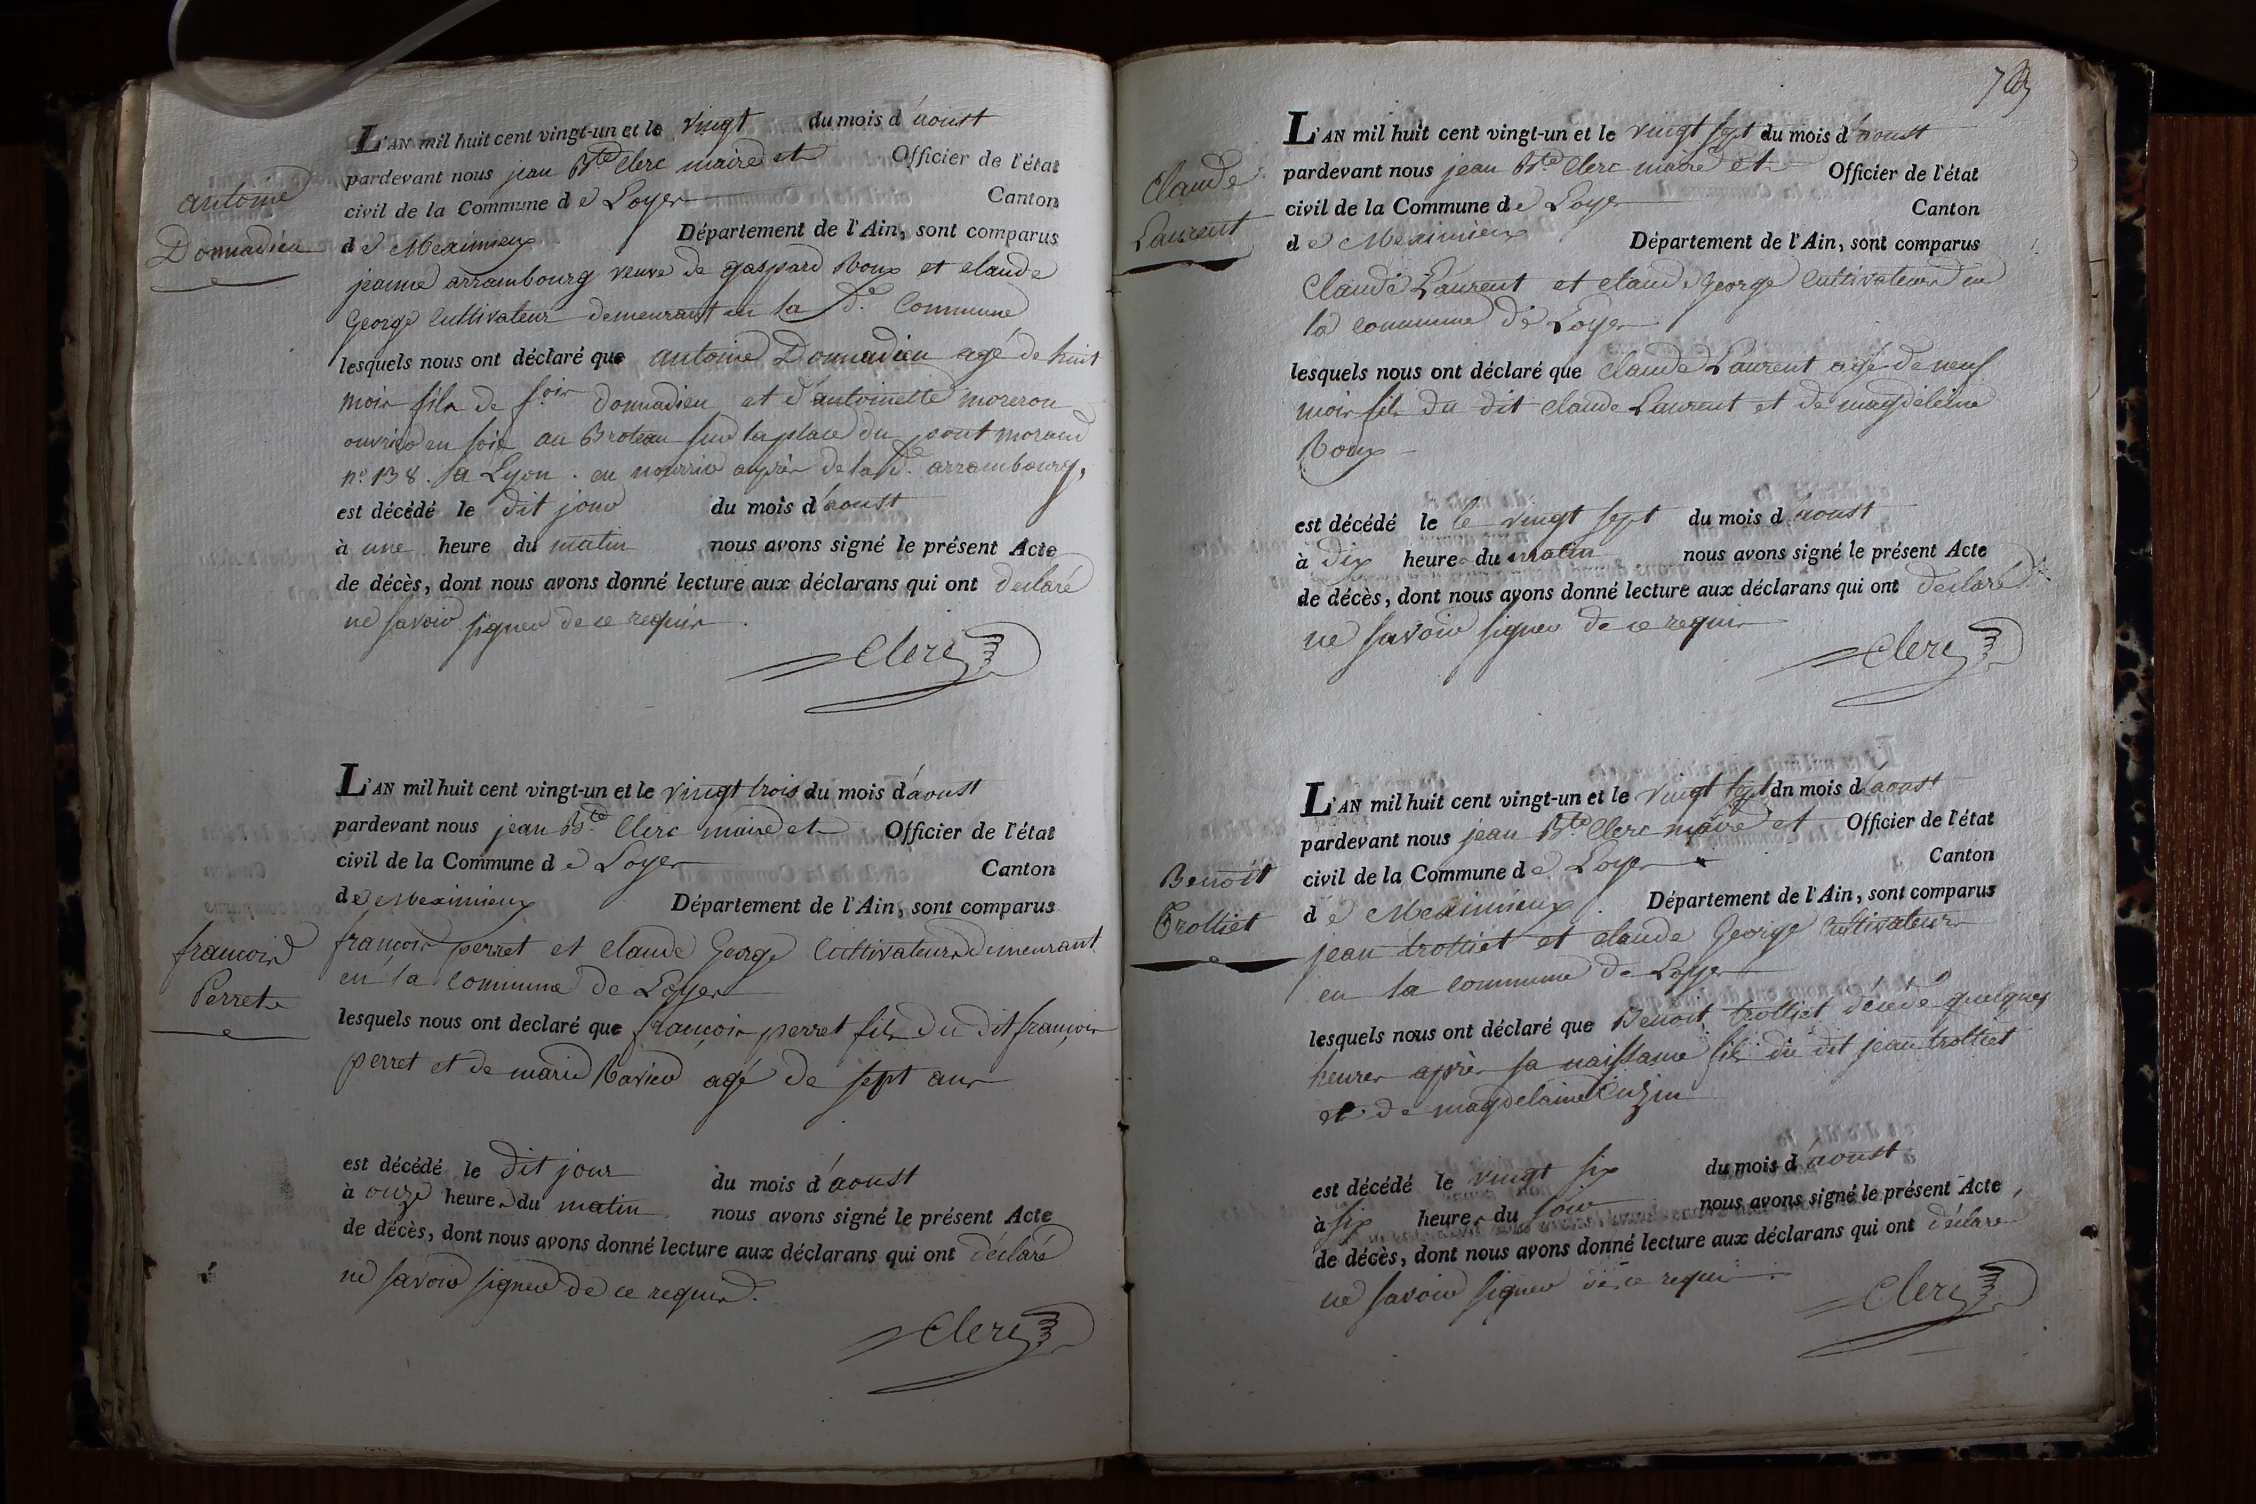 antoine
Donnadieu
L'AN mil huit cent vingt-un et le vingt du mois d'aoust
pardevant nous jean Bte Clerc maire et Officier de l'état
civil de la Commune de Loyes Canton
de Meximieux Département de l'Ain, sont comparus
jeanne arrambourg veuve de gaspard Roux et claude
George Cultivateur demeurant en la de. Commune
lesquels nous ont déclaré que antoine Donnadieu agé de huit
mois fils de donnadieu et d'antoinette moreron
ouvrier en soie au Broteau sur la place du pont morand
n° 138. a Lyon. en nourrice auprès de la de. arrambourg,
est décédé le dit jour du mois d'aoust
à une heure du matin nous avons signé le présent Acte
de décès, dont nous avons donné lecture aux déclarans qui ont declaré
ne savoir signer de ce requis.
Clerc
françois
Perret
L'AN mil huit cent vingt-un et le vingt trois du mois d'aoust
pardevant nous jean Bte Clerc maire et Officier de l'état
civil de la Commune de Loyes Canton
de Meximieux Département de l'Ain, sont comparus
françois perret et claude George Cultivateurs demeurant
en la commune de Loyes
lesquels nous ont declaré que françois perret fils du dit françois
perret et de marie Ravier agé de sept ans
est décédé le dit jour du mois d'aoust
à onze heures du matin nous avons signé le présent Acte
de décès, dont nous avons donné lecture aux déclarans qui ont déclaré
ne savoir signer de ce requis.
Clerc
Claude
Laurent
L'AN mil huit cent vingt-un et le vingt sept du mois d'aoust
pardevant nous jean Bte Clerc maire et Officier de l'état
civil de la Commune de Loyes Canton
de Meximieux Département de l'Ain, sont comparus
Claude Laurent et claude George Cultivateurs en
la commune de Loyes
lesquels nous ont déclaré que Claude Laurent agé de neuf
mois fils du dit claude Laurent et de magdeleine
Roux
est décédé le le vingt sept du mois d'aoust
à dix heures du matin nous avons signé le présent Acte
de décès, dont nous avons donné lecture aux déclarans qui ont declaré
ne savoir signer de ce requis
Clerc
Benoit
Trolliet
L'AN mil huit cent vingt-un et le vingt sept du mois d'aoust
pardevant nous jean Bte Clerc maire et Officier de l'état
civil de la Commune de Loyes Canton
de Meximieux Département de l'Ain, sont comparus
jean trolliet et claude George Cultivateurs
en la commune de Loyes
lesquels nous ont déclaré que Benoit trolliet décédé quelques
heures après sa naissance fils du dit jean trolliet
et de magdelaine Cuzin
est décédé le vingt six du mois d'aoust
à six heures du soir nous avons signé le présent Acte
de décès, dont nous avons donné lecture aux déclarans qui ont déclaré
ne savoir signer de ce requis.
Clerc